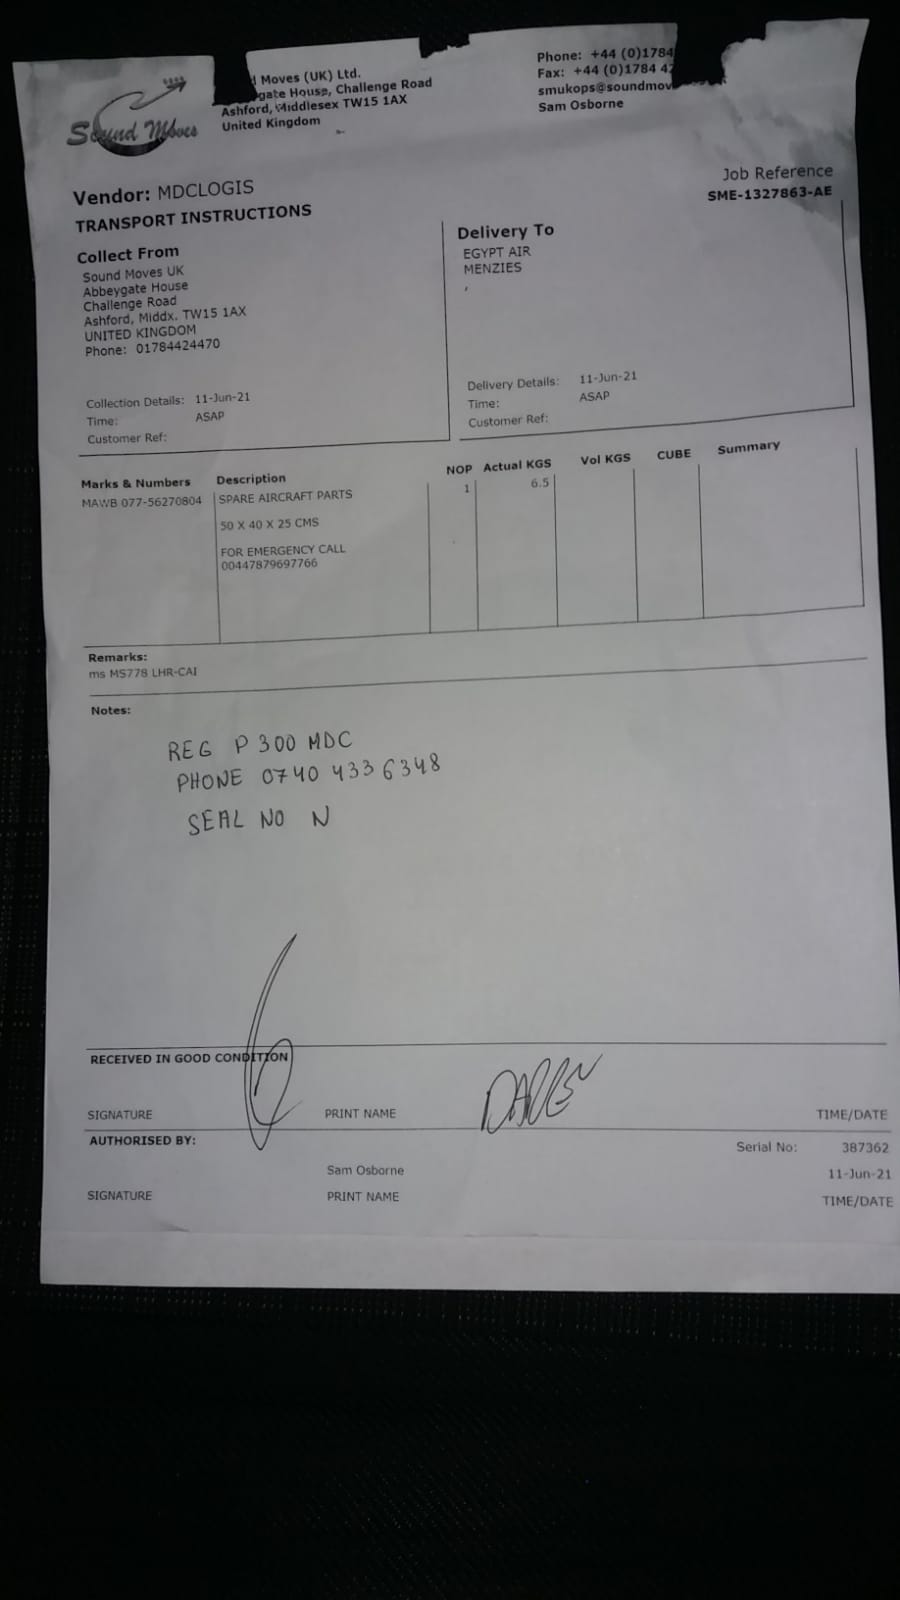 Sound Moves
Moves (UK) Ltd.
gate House, Challenge Road
Ashford, Middlesex TW15 1AX
United Kingdom
Phone: +44 (0)1784
Fax: +44 (0)1784 42
smukops@soundmov
Sam Osborne
Vendor: MDCLOGIS
TRANSPORT INSTRUCTIONS
Job Reference
SME-1327863-AE
Collect From
Sound Moves UK
Abbeygate House
Challenge Road
Ashford, Middx. TW15 1AX
UNITED KINGDOM
Phone: 01784424470
Collection Details: 11-Jun-21
Time: ASAP
Customer Ref:
Delivery To
EGYPT AIR
MENZIES
,
Delivery Details: 11-Jun-21
Time: ASAP
Customer Ref:
Marks & Numbers Description NOP Actual KGS Vol KGS CUBE Summary
MAWB 077-56270804 SPARE AIRCRAFT PARTS 1 6.5
50 X 40 X 25 CMS
FOR EMERGENCY CALL
00447879697766
Remarks:
ms MS778 LHR-CAI
Notes:
REG P300 MDC
PHONE 0740 433 6348
SEAL NO N
RECEIVED IN GOOD CONDITION
SIGNATURE PRINT NAME TIME/DATE
AUTHORISED BY: Serial No: 387362
Sam Osborne 11-Jun-21
SIGNATURE PRINT NAME TIME/DATE